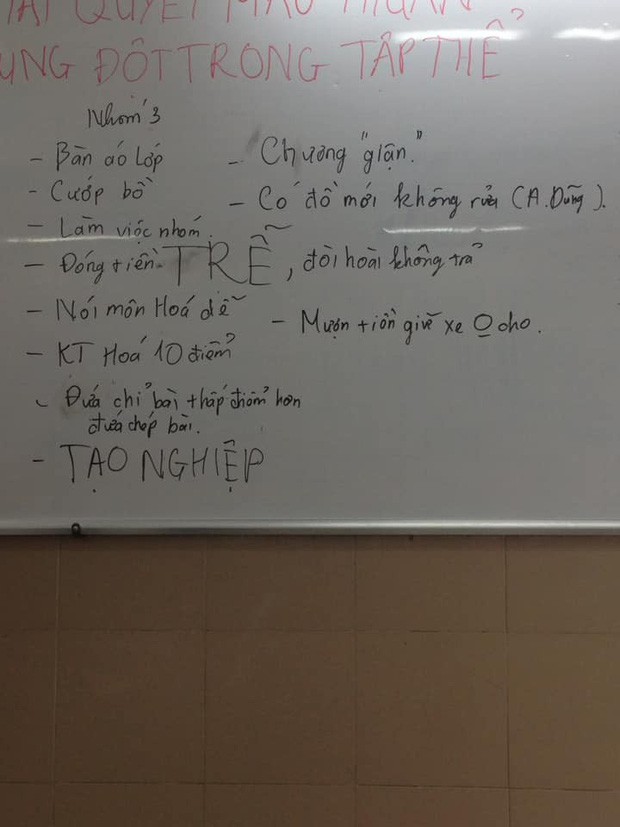 QUYẾT MÂU THUẪN
UNG ĐỘT TRONG TẬP THỂ
Nhóm 3
- Bàn áo lớp
- Cướp bồ
- Làm việc nhóm.
- Đóng tiền TRỄ, đòi hoài không trả
- Nói môn Hoá dễ
- KT Hoá 10 điểm
- Đứa chỉ bài thấp điểm hơn
đứa chép bài.
- TẠO NGHIỆP
- Chương "giận."
- Có đồ mới không rửa (A. Dũng).
- Mượn tiền giữ xe O cho.